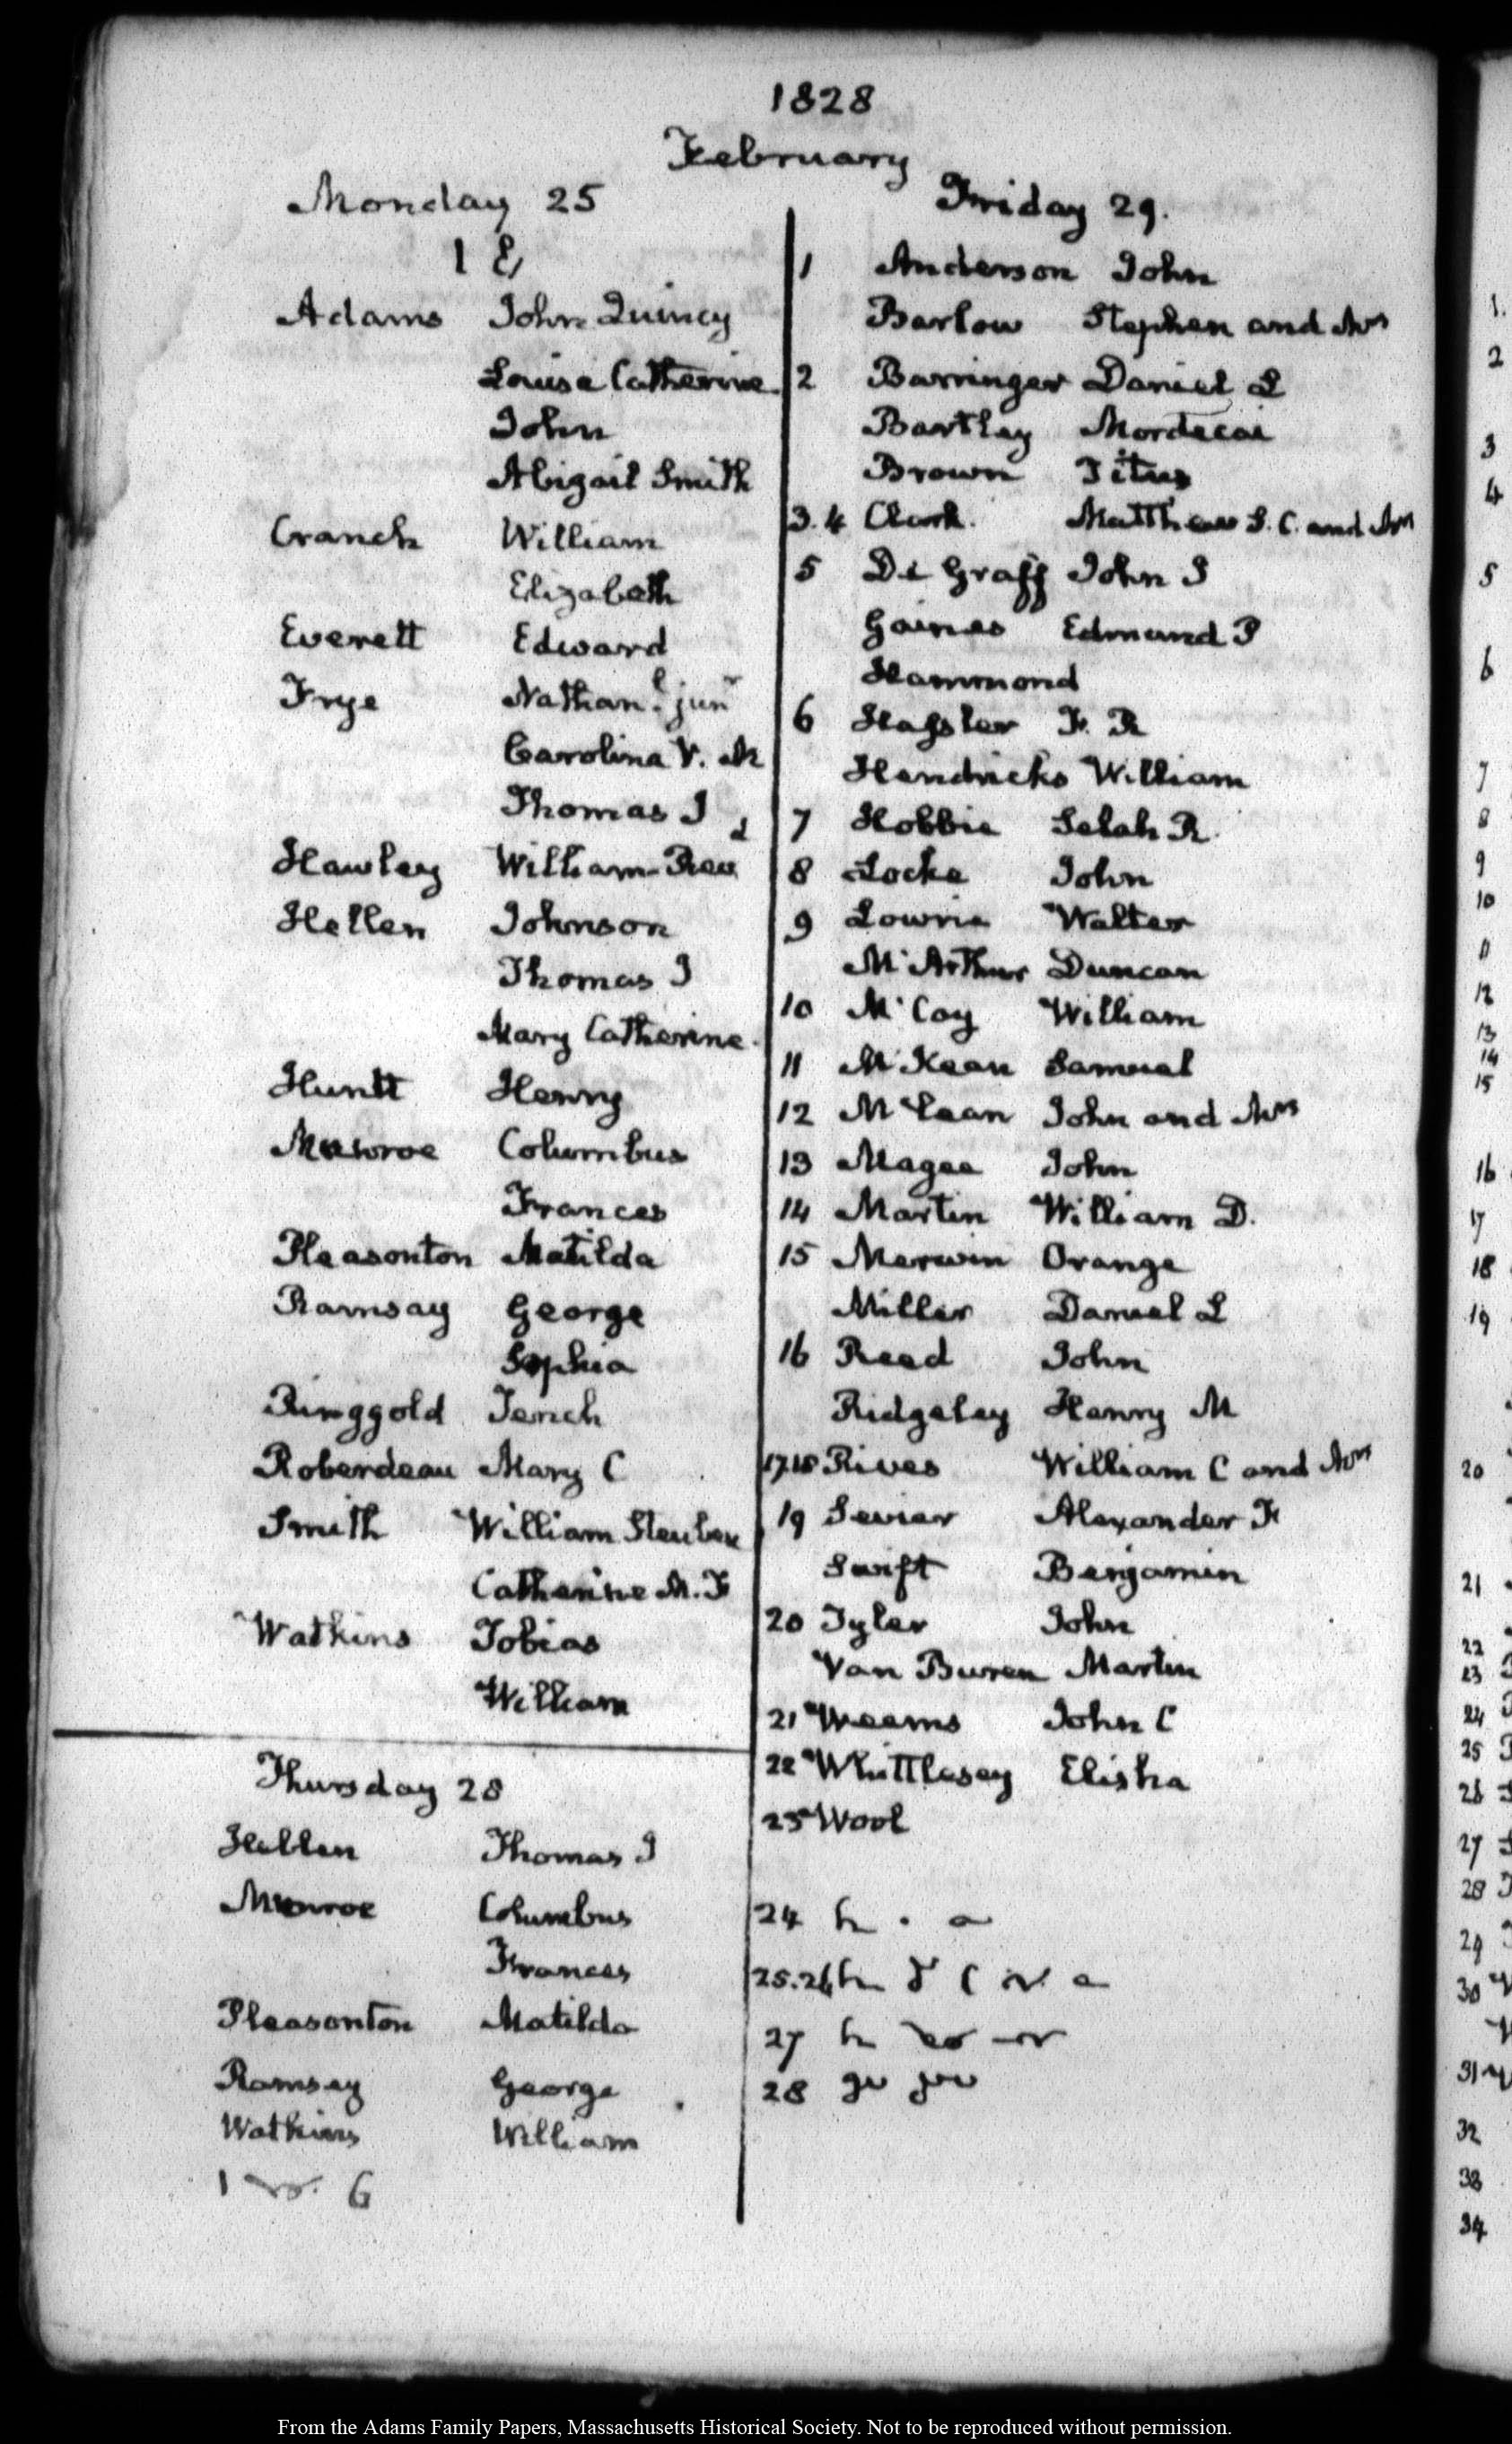 1828
February
Monday 25
1 &
Adams John Quincy
Louisa Catherine.
John
Abigail Smith
Cranch William
Elizabeth
Everett Edward
Frye Nathanl. junr
Carolina V. M
Thomas J
Hawley William Revd
Hellen Johnson
Thomas J
Mary Catherine.
Huntt Henry
Munroe Columbus
Frances
Pleasonton Matilda
Ramsay George
Sophia
Ringgold Tench
Roberdeau Mary C
Smith William Steuben
Catherine M. F
Watkins Tobias
William
Thursday 28
Hellen Thomas J
Munroe Columbus
Frances
Pleasonton Matilda
Ramsay George
Watkins William
Friday 29.
1 Anderson John
Barlow Stephen and Mrs
2 Barringer Daniel L
Bartley Mordecai
Brown Titus
3.4 Clark. Matthew S. C. and Mrs
5 De Graff John I
Gaines Edmund P
Hammond
6 Hassler F. R
Hendricks William
7 Hobbie Selah R.
8 Locke John
9 Lowrie Walter
McArthur Duncan
10 McCoy William
11 McKean Samuel
12 McLean John and Mrs
13 Magee John
14 Martin William D.
15 Merwin Orange
Miller Daniel L
16 Reed John
Ridgeley Henry M
17.18 Rives William C and Mrs
19 Sevier Alexander F
Swift Benjamin
20 Tyler John
Van Buren Martin
21 Weems John C
22 Whittlesey Elisha
23 Wool
24
25.26
27
28
1.
2
3
4
5
6
7
8
9
10
11
12
13
14
15
16
17
18
19
20
21
22
23
24
25
26
27
28
29
30
31
32
33
34
From the Adams Family Papers, Massachusetts Historical Society. Not to be reproduced without permission.